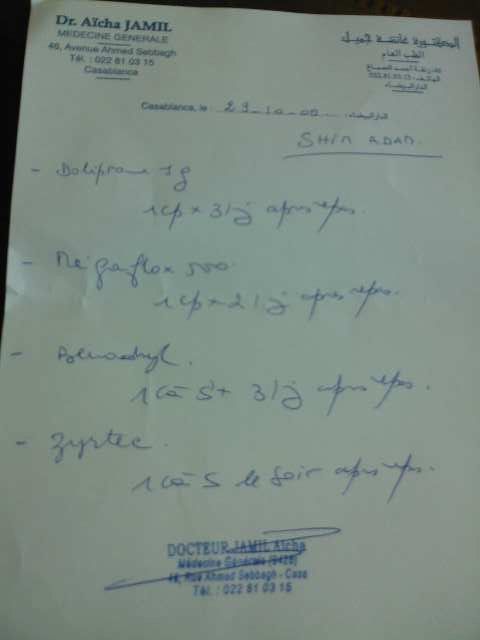 Dr. Aïcha JAMIL
MÉDECINE GÉNÉRALE
46, Avenue Ahmed Sebbagh
Tél. : 022 81 03 15
Casablanca
الدكتورة عائشة جميل
الطب العام
46، زنقة أحمد الصباغ
الهاتف : 022.81.03.15
الدار البيضاء
Casablanca, le : 29-10-00 الدار البيضاء،
SHIM ADAM.
- Doliprane 1g
1cp x 3/j après repas.
- Mégaflox 500.
1cp x 2/j après repas.
- 
1 cà S x 3/j après repas.
- Zyrtec.
1 cà S le soir après repas.
DOCTEUR JAMIL Aïcha
Médecine Générale
46, Rue Ahmed Sebbagh - Casa
Tél. : 022 81 03 15